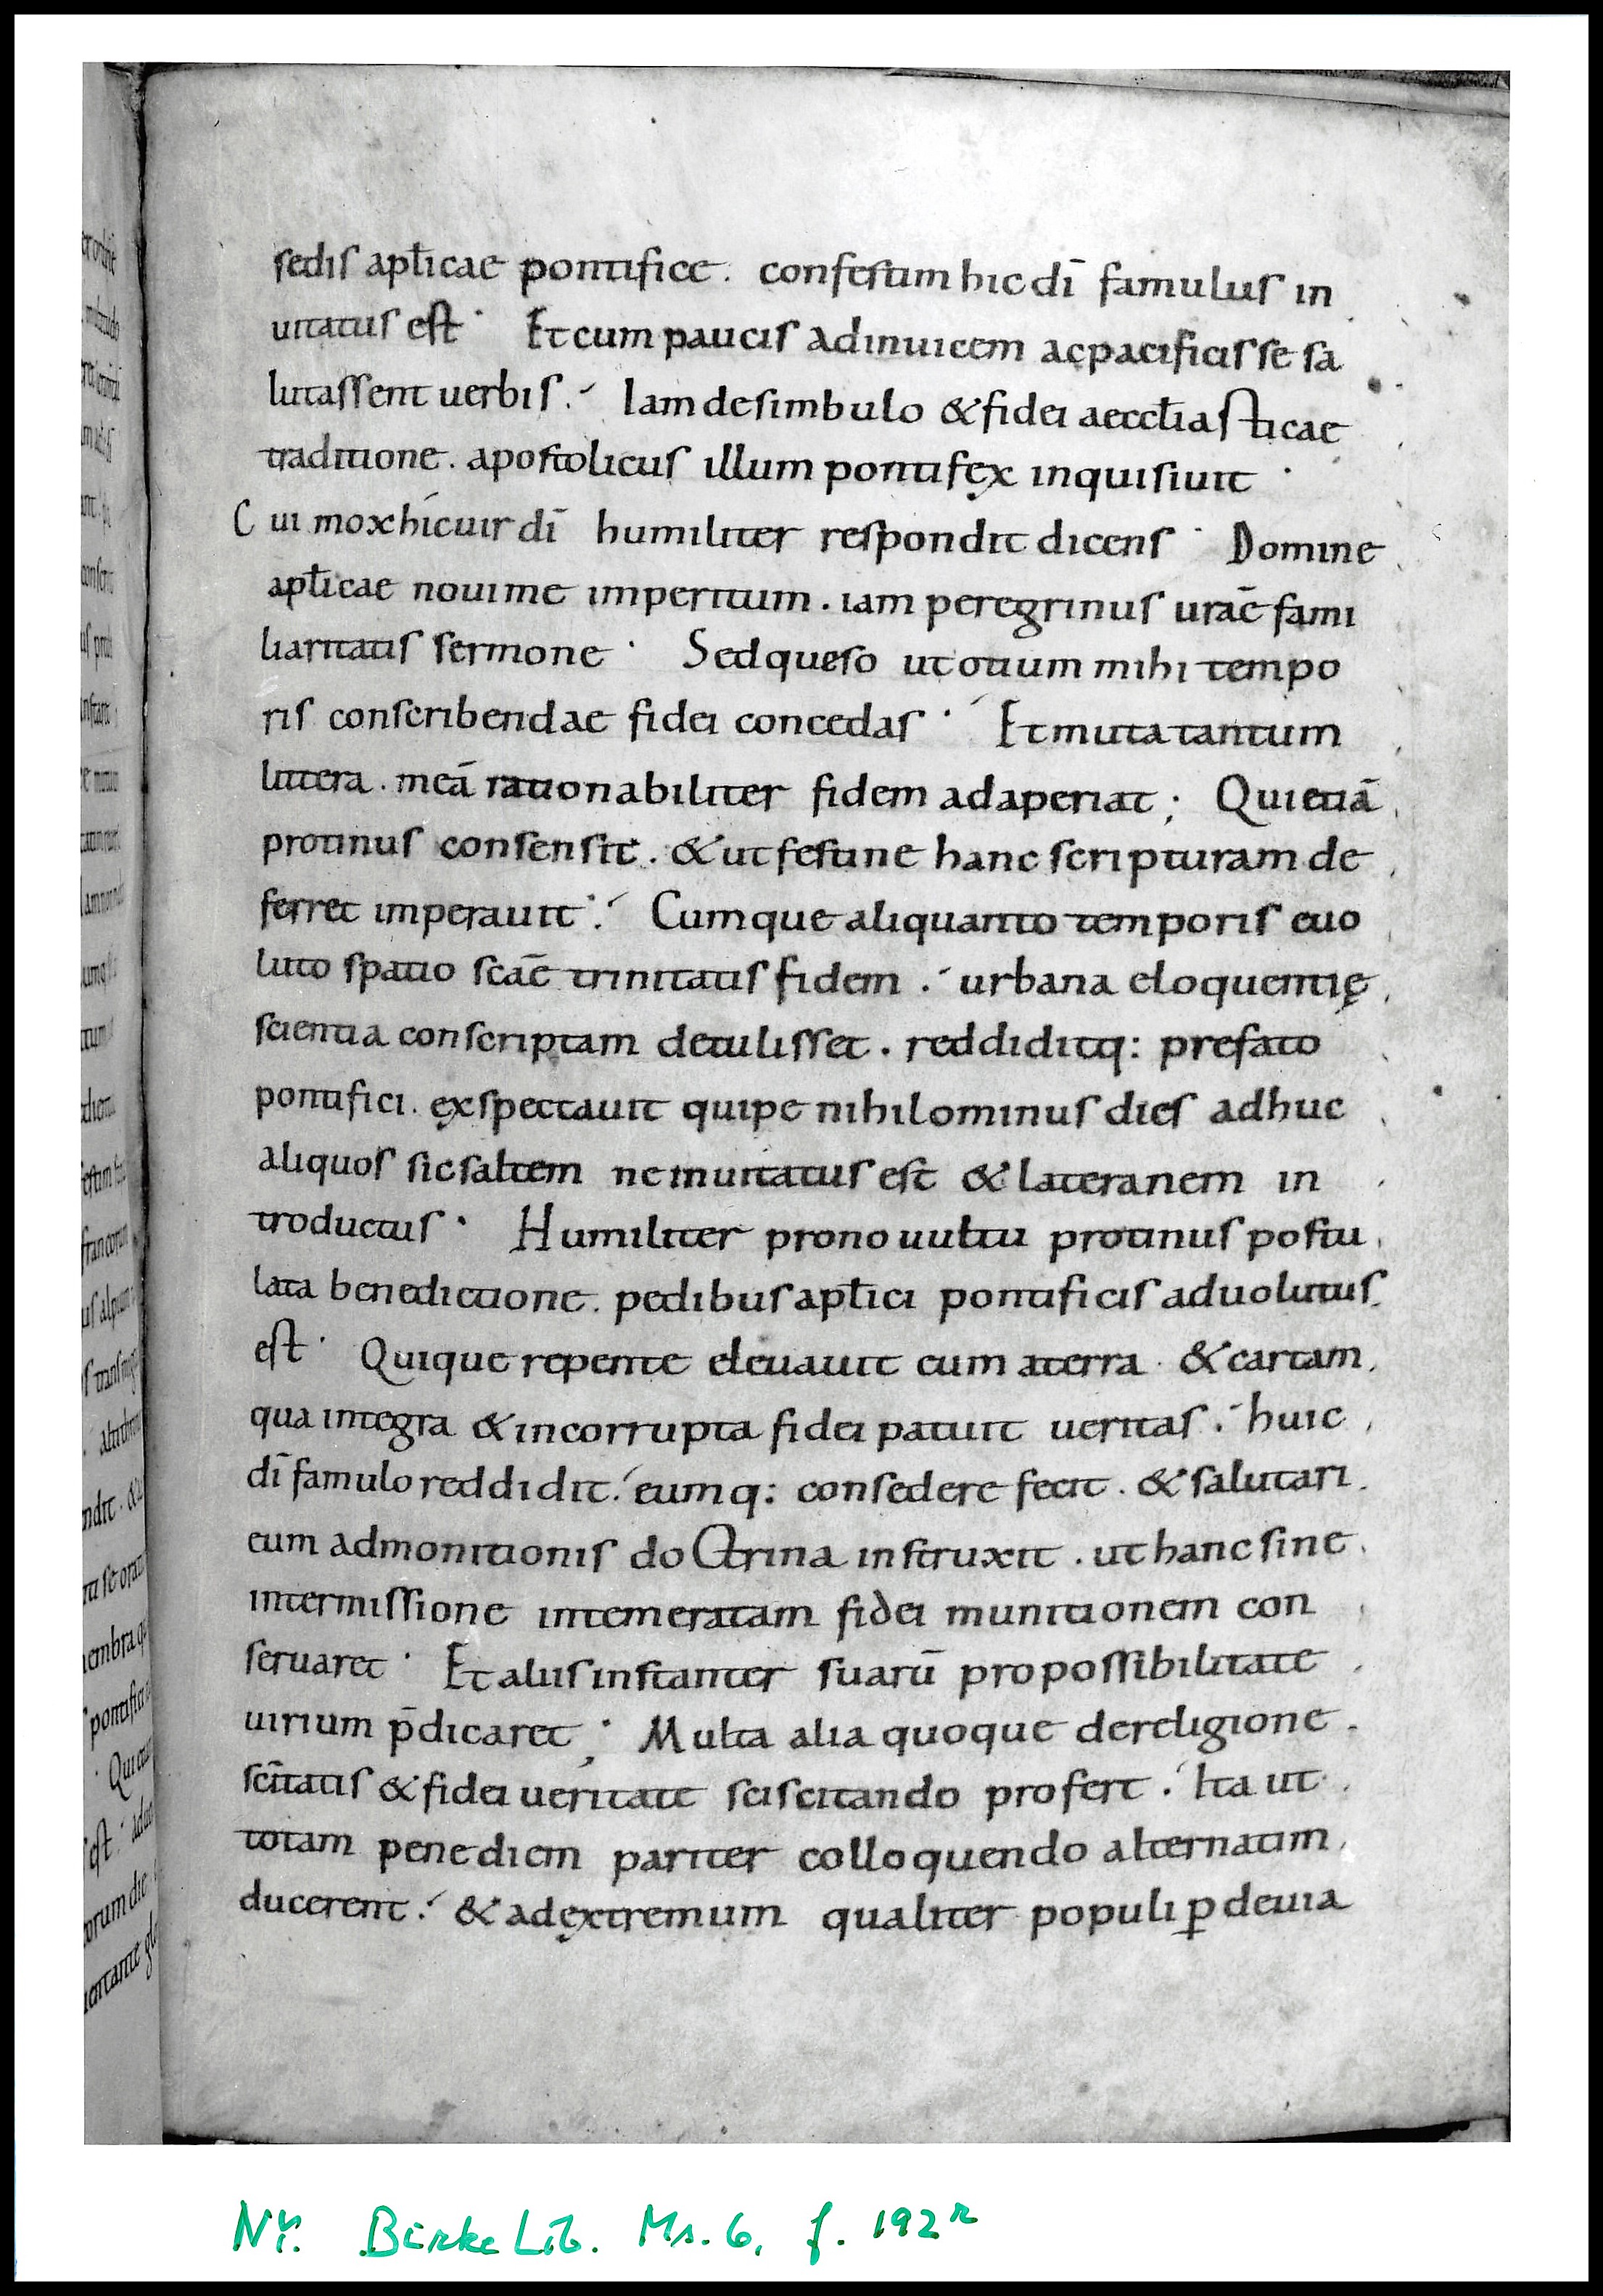 sedis apłicae pontifice. confestim hic dī famulus in
uitatus est· Et cum paucis adinuicem ac pacificis se sa
lutassent uerbis. Iam de simbulo & fidei aeccłiasticae
traditione. apostolicus illum pontifex inquisiuit·
Cui mox hic uir dī humiliter respondit dicens· Domine
apłicae noui me imperitum. iam peregrinus urāe fami
liaritatis sermone· Sed queso ut otium mihi tempo
ris conscribendae fidei concedas· Et muta tantum
littera. meā rationabiliter fidem adaperiat; Qui etiā
protinus consensit. & ut festine hanc scripturam de
ferret imperauit. Cumque aliquanto temporis euo
luto spatio scāe trinitatis fidem. urbana eloquentię
scientia conscriptam detulisset. reddiditq: prefato
pontifici. exspectauit quipe nihilominus dies adhuc
aliquos sic saltem ne inuitatus est & lateranem in
troductus· Humiliter prono uultu protinus postu
lata benedictione. pedibus apłici pontificis aduolutus
est· Quique repente eleuauit eum a terra· & cartam
qua integra & incorrupta fidei patuit ueritas. huic
dī famulo reddidit. eumq: consedere fecit. & salutari
eum admonitionis doctrina instruxit. ut hanc sine
intermissione intemeratam fidei munitionem con
seruaret· Et aliis instanter suarū pro possibilitate
uirium p̄dicaret; Multa alia quoque de religione
scītatis & fidei ueritate sciscitando profert. Ita ut
totam pene diem pariter colloquendo alternatim
ducerent. & ad extremum qualiter populi ꝑ deuia
NY. Burke Lib. Ms. 6, f. 192r